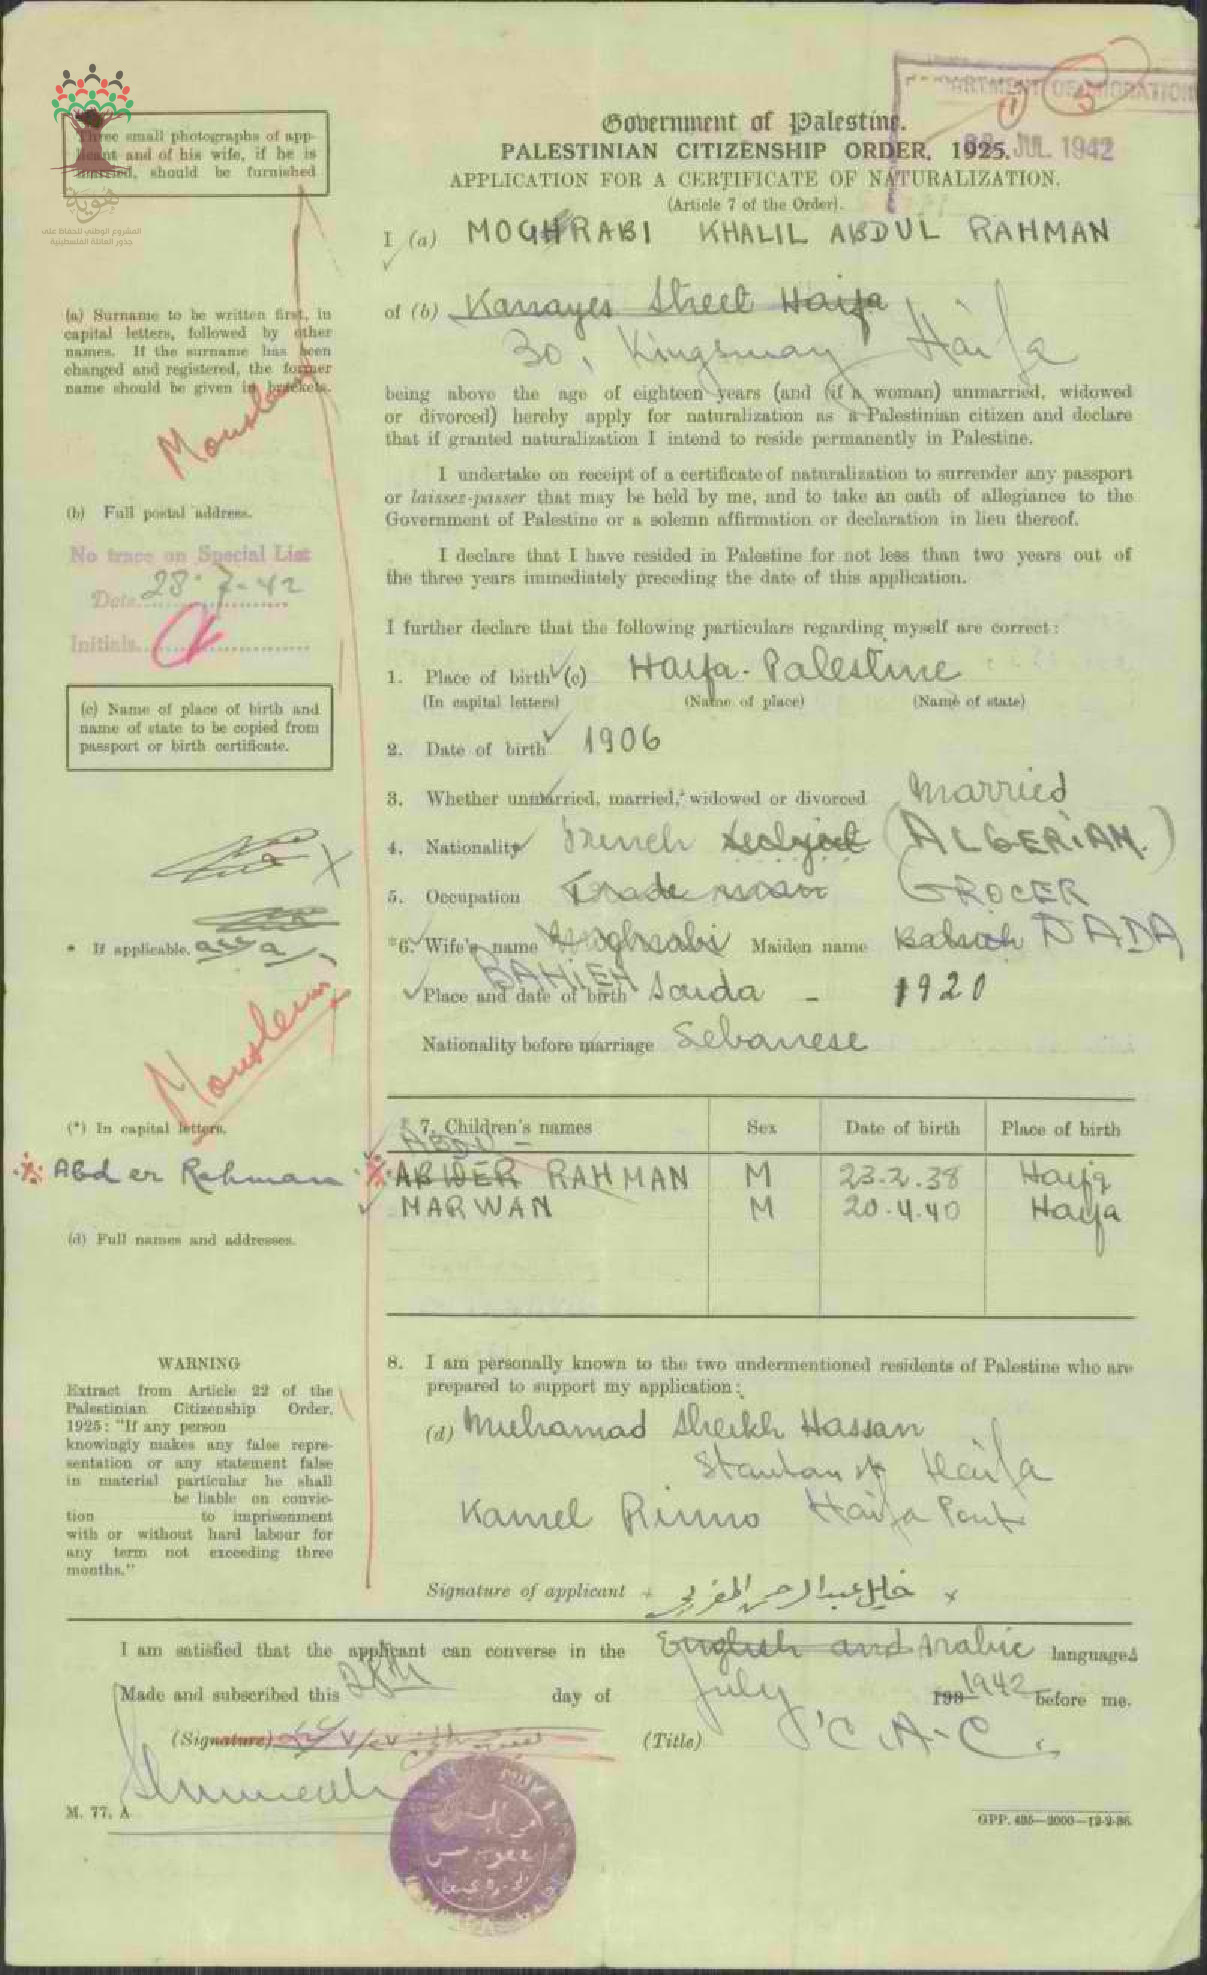 DEPARTMENT OF MIGRATION
28 JUL 1942
1
5
Three small photographs of app-
licant and of his wife, if he is
married, should be furnished
هوية
المشروع الوطني للحفاظ على
جذور العائلة الفلسطينية
Government of Palestine.
PALESTINIAN CITIZENSHIP ORDER, 1925.
APPLICATION FOR A CERTIFICATE OF NATURALIZATION.
(Article 7 of the Order).
I (a) MOGHRABI KHALIL ABDUL RAHMAN
of (b) Karrayes Street Haifa
30, Kingsway Haifa
(a) Surname to be written first, in
capital letters, followed by other
names. If the surname has been
changed and registered, the former
name should be given in brackets.
Mouslem
being above the age of eighteen years (and (if a woman) unmarried, widowed
or divorced) hereby apply for naturalization as a Palestinian citizen and declare
that if granted naturalization I intend to reside permanently in Palestine.
I undertake on receipt of a certificate of naturalization to surrender any passport
or laissez-passer that may be held by me, and to take an oath of allegiance to the
Government of Palestine or a solemn affirmation or declaration in lieu thereof.
(b) Full postal address.
No trace on Special List
Date 28.7.42
Initials
I declare that I have resided in Palestine for not less than two years out of
the three years immediately preceding the date of this application.
I further declare that the following particulars regarding myself are correct:
1. Place of birth (c) Haifa - Palestine
(In capital letters) (Name of place) (Name of state)
(c) Name of place of birth and
name of state to be copied from
passport or birth certificate.
2. Date of birth 1906
3. Whether unmarried, married, widowed or divorced Married
4. Nationality French Subject (ALGERIAN.)
5. Occupation Trades man GROCER
* If applicable.
*6. Wife's name Moghrabi Maiden name DADA
BAHIEH
Place and date of birth Saida - 1920
Nationality before marriage Lebanese
Mouslem
(*) In capital letters.
7. Children's names Sex Date of birth Place of birth
ABDU -
Abd er Rahman
ABDER RAHMAN M 23.2.38 Haifa
MARWAN M 20.4.40 Haifa
(d) Full names and addresses.
WARNING
Extract from Article 22 of the
Palestinian Citizenship Order,
1925: "If any person
knowingly makes any false repre-
sentation or any statement false
in material particular he shall
be liable on convic-
tion to imprisonment
with or without hard labour for
any term not exceeding three
months."
8. I am personally known to the two undermentioned residents of Palestine who are
prepared to support my application:
(d) Muhamad Sheikh Hassan
Stanton st Haifa
Kamel Rimo Haifa Port
Signature of applicant + خليل عبد الرحمن المغربي x
I am satisfied that the applicant can converse in the English and Arabic languages
Made and subscribed this 28th day of July 193 1942 before me.
(Signature) (Title) C.A.C.
M. 77. A
GPP. 435—2000—12-2-36